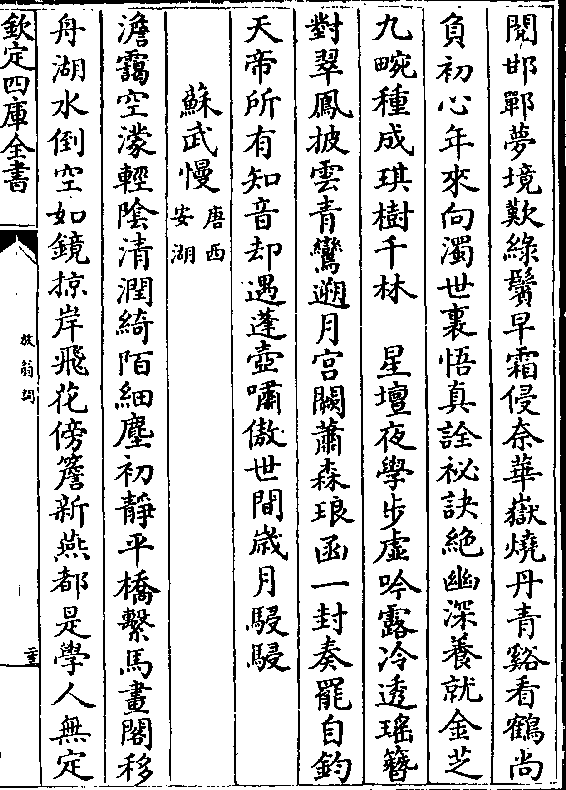 閱邯鄲夢境歎綠鬢早霜侵奈華嶽燒丹青谿看鶴尚
負初心年來向濁世裏悟真詮祕訣絶幽深養就金芝
九畹種成琪樹千林　星壇夜學步虛吟露冷透瑤簪
對翠鳳披雲青鸞遡月宫闕蕭森琅函一封奏罷自鈞
天帝所有知音却遇蓬壺嘯傲世間歲月駸駸
蘇武慢唐安西湖
澹靄空濛輕陰清潤綺陌細塵初靜平橋繫馬畫閣移
舟湖水倒空如鏡掠岸飛花傍簷新燕都是學人無定
欽定四庫全書
放翁詞